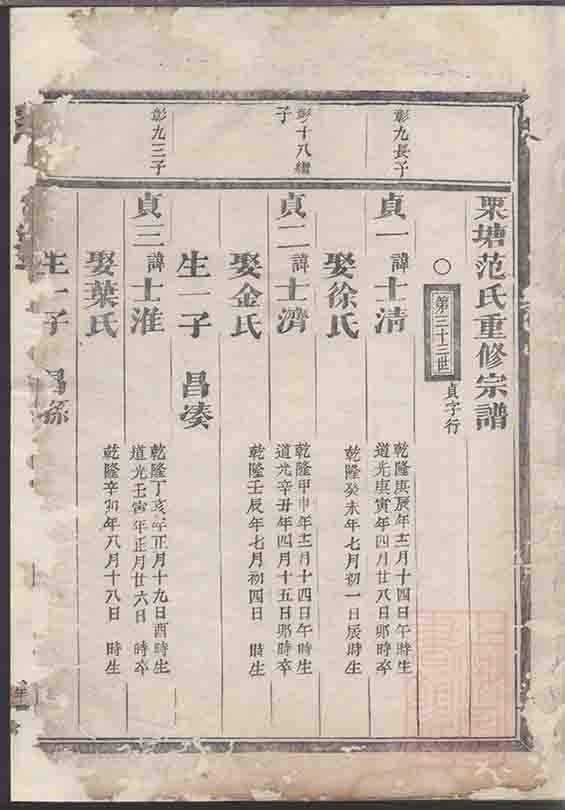 栗塘范氏重修宗譜
○ 第三十三世 貞字行
彰九長子
貞一 諱士清 乾隆庚辰年十二月十四日午時生
道光庚寅年四月廿八日卯時卒
娶徐氏 乾隆癸未年七月初一日辰時生
彰十八繼子
貞二 諱士濟 乾隆甲申年十二月十四日午時生
道光辛丑年四月十五日卯時卒
娶金氏 乾隆壬辰年七月初四日 時生
生一子 昌湊
彰九三子
貞三 諱士淮 乾隆丁亥年正月十九日酉時生
道光壬寅年正月廿六日 時卒
娶葉氏 乾隆辛卯年八月十八日 時生
生一子 昌孫